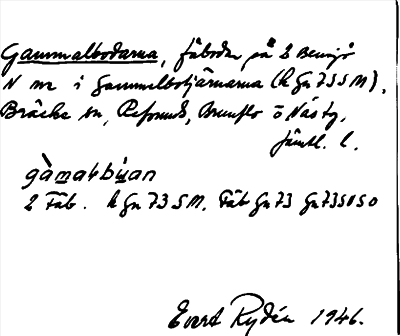 Gammalbodarna, fäbodar på 2 Bensjö
N m i Gammelbotjärnarna (k Gn 73 5 M),
Bräcke sn, Refsunds, Brunflo o Näs tg,
Jämtl. l.
gàmałbu̇an
2 Fäb. k Gn 73 5 M. Fäb Gn 73 Gn 735050
Evert Rydén 1946.